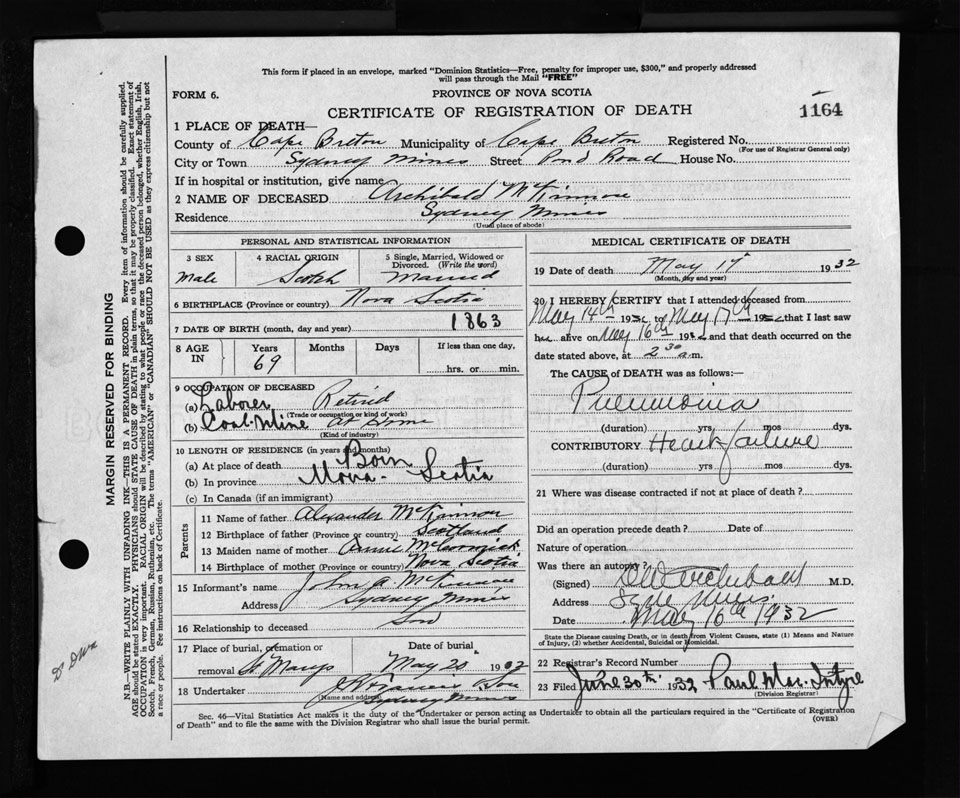 This form if placed in an envelope, marked "Dominion Statistics—Free, penalty for improper use, $300," and properly addressed
will pass through the Mail "FREE"
FORM 6.
PROVINCE OF NOVA SCOTIA
CERTIFICATE OF REGISTRATION OF DEATH
1164
1 PLACE OF DEATH—
County of Cape Breton Municipality of Cape Breton Registered No.
(For use of Registrar General only)
City or Town Sydney Mines Street Pond Road House No.
If in hospital or institution, give name
2 NAME OF DECEASED Archibald McKinnon
Residence Sydney Mines
(Usual place of abode)
PERSONAL AND STATISTICAL INFORMATION
3 SEX
Male
4 RACIAL ORIGIN
Scotch
5 Single, Married, Widowed or
Divorced. (Write the word)
Married
6 BIRTHPLACE (Province or country) Nova Scotia
7 DATE OF BIRTH (month, day and year) 1863
8 AGE IN
Years
69
Months
Days
If less than one day,
hrs. or min.
9 OCCUPATION OF DECEASED
(a) Laborer Retired
(Trade or occupation or kind of work)
(b) Coal Mine at Home
(Kind of industry)
10 LENGTH OF RESIDENCE (in years and months)
(a) At place of death Born
(b) In province Nova-Scotia
(c) In Canada (if an immigrant)
Parents
11 Name of father Alexander McKinnon
12 Birthplace of father (Province or country) Scotland
13 Maiden name of mother Annie McCormick
14 Birthplace of mother (Province or country) Nova Scotia
15 Informant's name John A McKinnon
Address Sydney Mines
16 Relationship to deceased Son
17 Place of burial, cremation or
removal St Marys
Date of burial
May 20 1932
18 Undertaker
(Name and address)
Sydney Mines
MEDICAL CERTIFICATE OF DEATH
19 Date of death May 17 1932
(Month, day and year)
20 I HEREBY CERTIFY that I attended deceased from
May 14th 1932 to May 17th 1932 that I last saw
h alive on May 16th 193 and that death occurred on the
date stated above, at 2 30 a.m.
The CAUSE of DEATH was as follows:—
Pneumonia
(duration) yrs mos dys.
CONTRIBUTORY Heart failure
(duration) yrs mos dys.
21 Where was disease contracted if not at place of death?
Did an operation precede death? Date of
Nature of operation
Was there an autopsy?
(Signed) Archibald M.D.
Address Syd Mines
Date May 16th 1932
State the Disease causing Death, or in death from Violent Causes, state (1) Means and Nature
of Injury, (2) whether Accidental, Suicidal or Homicidal.
22 Registrar's Record Number
23 Filed June 30th 1932 Paul MacIntyre
(Division Registrar)
Sec. 46—Vital Statistics Act makes it the duty of the Undertaker or person acting as Undertaker to obtain all the particulars required in the "Certificate of Registration
of Death" and to file the same with the Division Registrar who shall issue the burial permit.
(OVER)
MARGIN RESERVED FOR BINDING
N.B.—WRITE PLAINLY WITH UNFADING INK—THIS IS A PERMANENT RECORD. Every item of information should be carefully supplied.
AGE should be stated EXACTLY. PHYSICIANS should STATE CAUSE OF DEATH in plain terms, so that it may be properly classified. Exact statement of
OCCUPATION is very important. RACIAL ORIGIN will be described by stating to what people or race the deceased person belonged, whether English, Irish,
Scotch, French, German, Russian, Ruthenian, etc. The terms "AMERICAN" or "CANADIAN" SHOULD NOT BE USED as they express citizenship but not
a race or people. See instructions on back of Certificate.